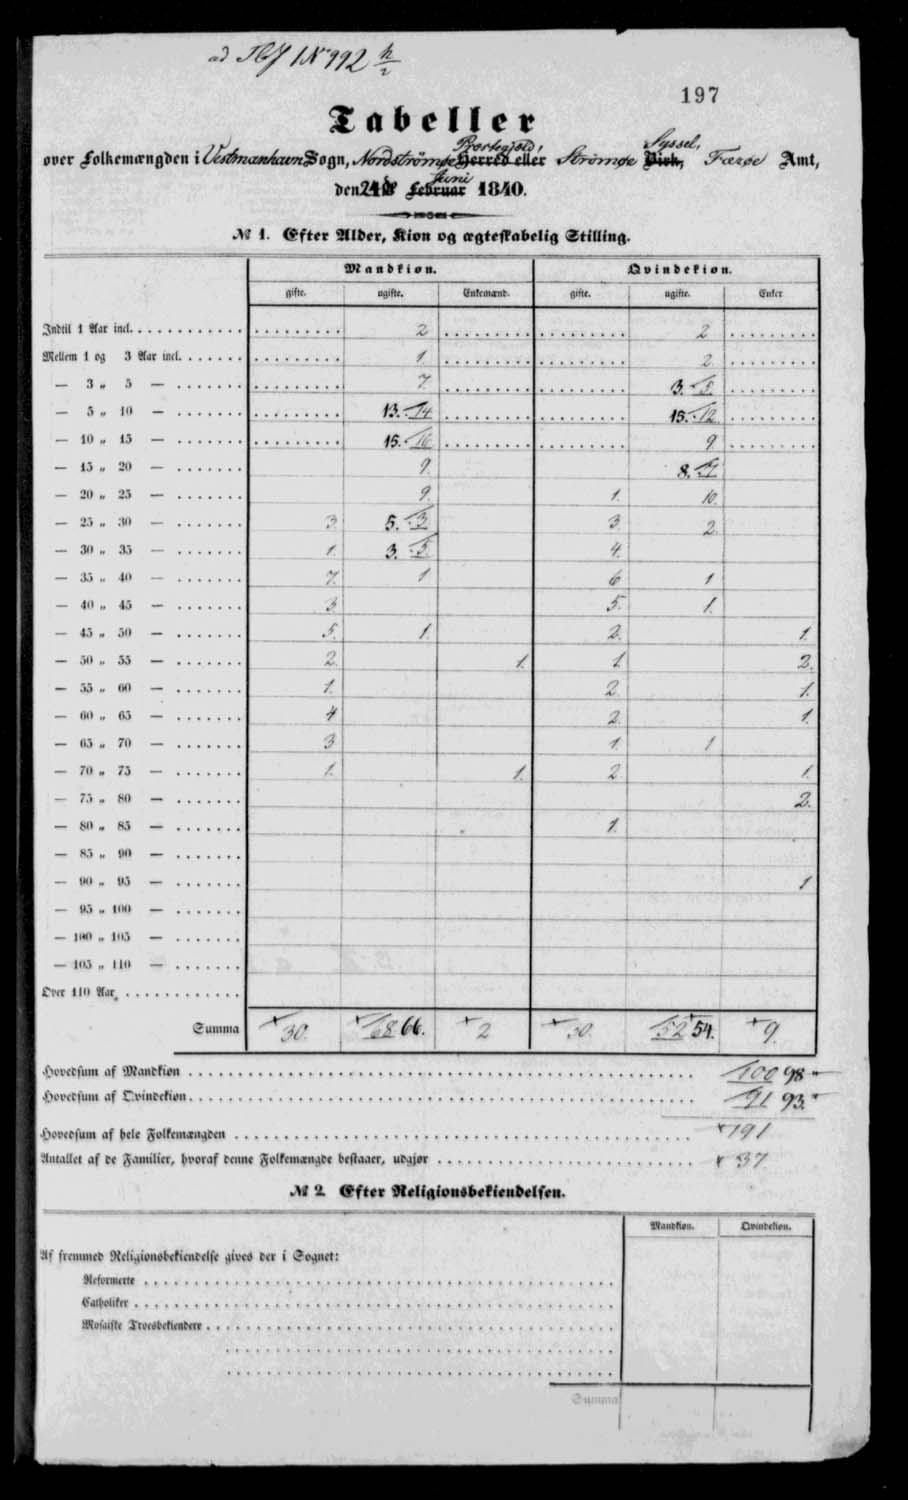 ad № 992
197
Tabeller
Præstegjæld, Syssel,
over Folkemængden i Vestmanhavn Sogn, Nordstrømøe Herred eller Strømøe Birk, Færøe Amt,
Juni
den Februar 1840.
№ 1. Efter Alder, Kion og ægteskabelig Stilling.
Mandkion. Qvindekion.
gifte. ugifte. Enkemænd. gifte. ugifte. Enker
Indtil 1 Aar incl. 2 2
Mellem 1 og 3 Aar incl. 1. 2.
— 3 „ 5 — 7. 3. 5.
— 5 „ 10 — 13. 14 15. 12.
— 10 „ 15 — 15. 16 9
— 15 „ 20 — 9. 8. 9
— 20 „ 25 — 9. 1. 10.
— 25 „ 30 — 3. 5. 3. 3. 2.
— 30 „ 35 — 1. 3. 5. 4.
— 35 „ 40 — 7. 1 6 1
— 40 „ 45 — 3. 5. 1.
— 45 „ 50 — 5. 1. 2. 1.
— 50 „ 55 — 2. 1. 1. 2.
— 55 „ 60 — 1. 2. 1.
— 60 „ 65 — 4 2. 1.
— 65 „ 70 — 3 1. 1
— 70 „ 75 — 1. 1. 2. 1.
— 75 „ 80 — 2.
— 80 „ 85 — 1.
— 85 „ 90 —
— 90 „ 95 — 1
— 95 „ 100 —
— 100 „ 105 —
— 105 „ 110 —
Over 110 Aar
Summa 30. 68 66. 2 30. 52 54. 9.
Hovedsum af Mandkion 100 98
Hovedsum af Qvindekion 91 93.
Hovedsum af hele Folkemængden 191
Antallet af de Familier, hvoraf denne Folkemængde bestaaer, udgjør 37
№ 2. Efter Religionsbekiendelsen.
Mandkion. Qvindekion.
Af fremmed Religionsbekiendelse gives der i Sognet:
Reformerte
Catholiker
Mosaiske Troesbekiendere
Summa